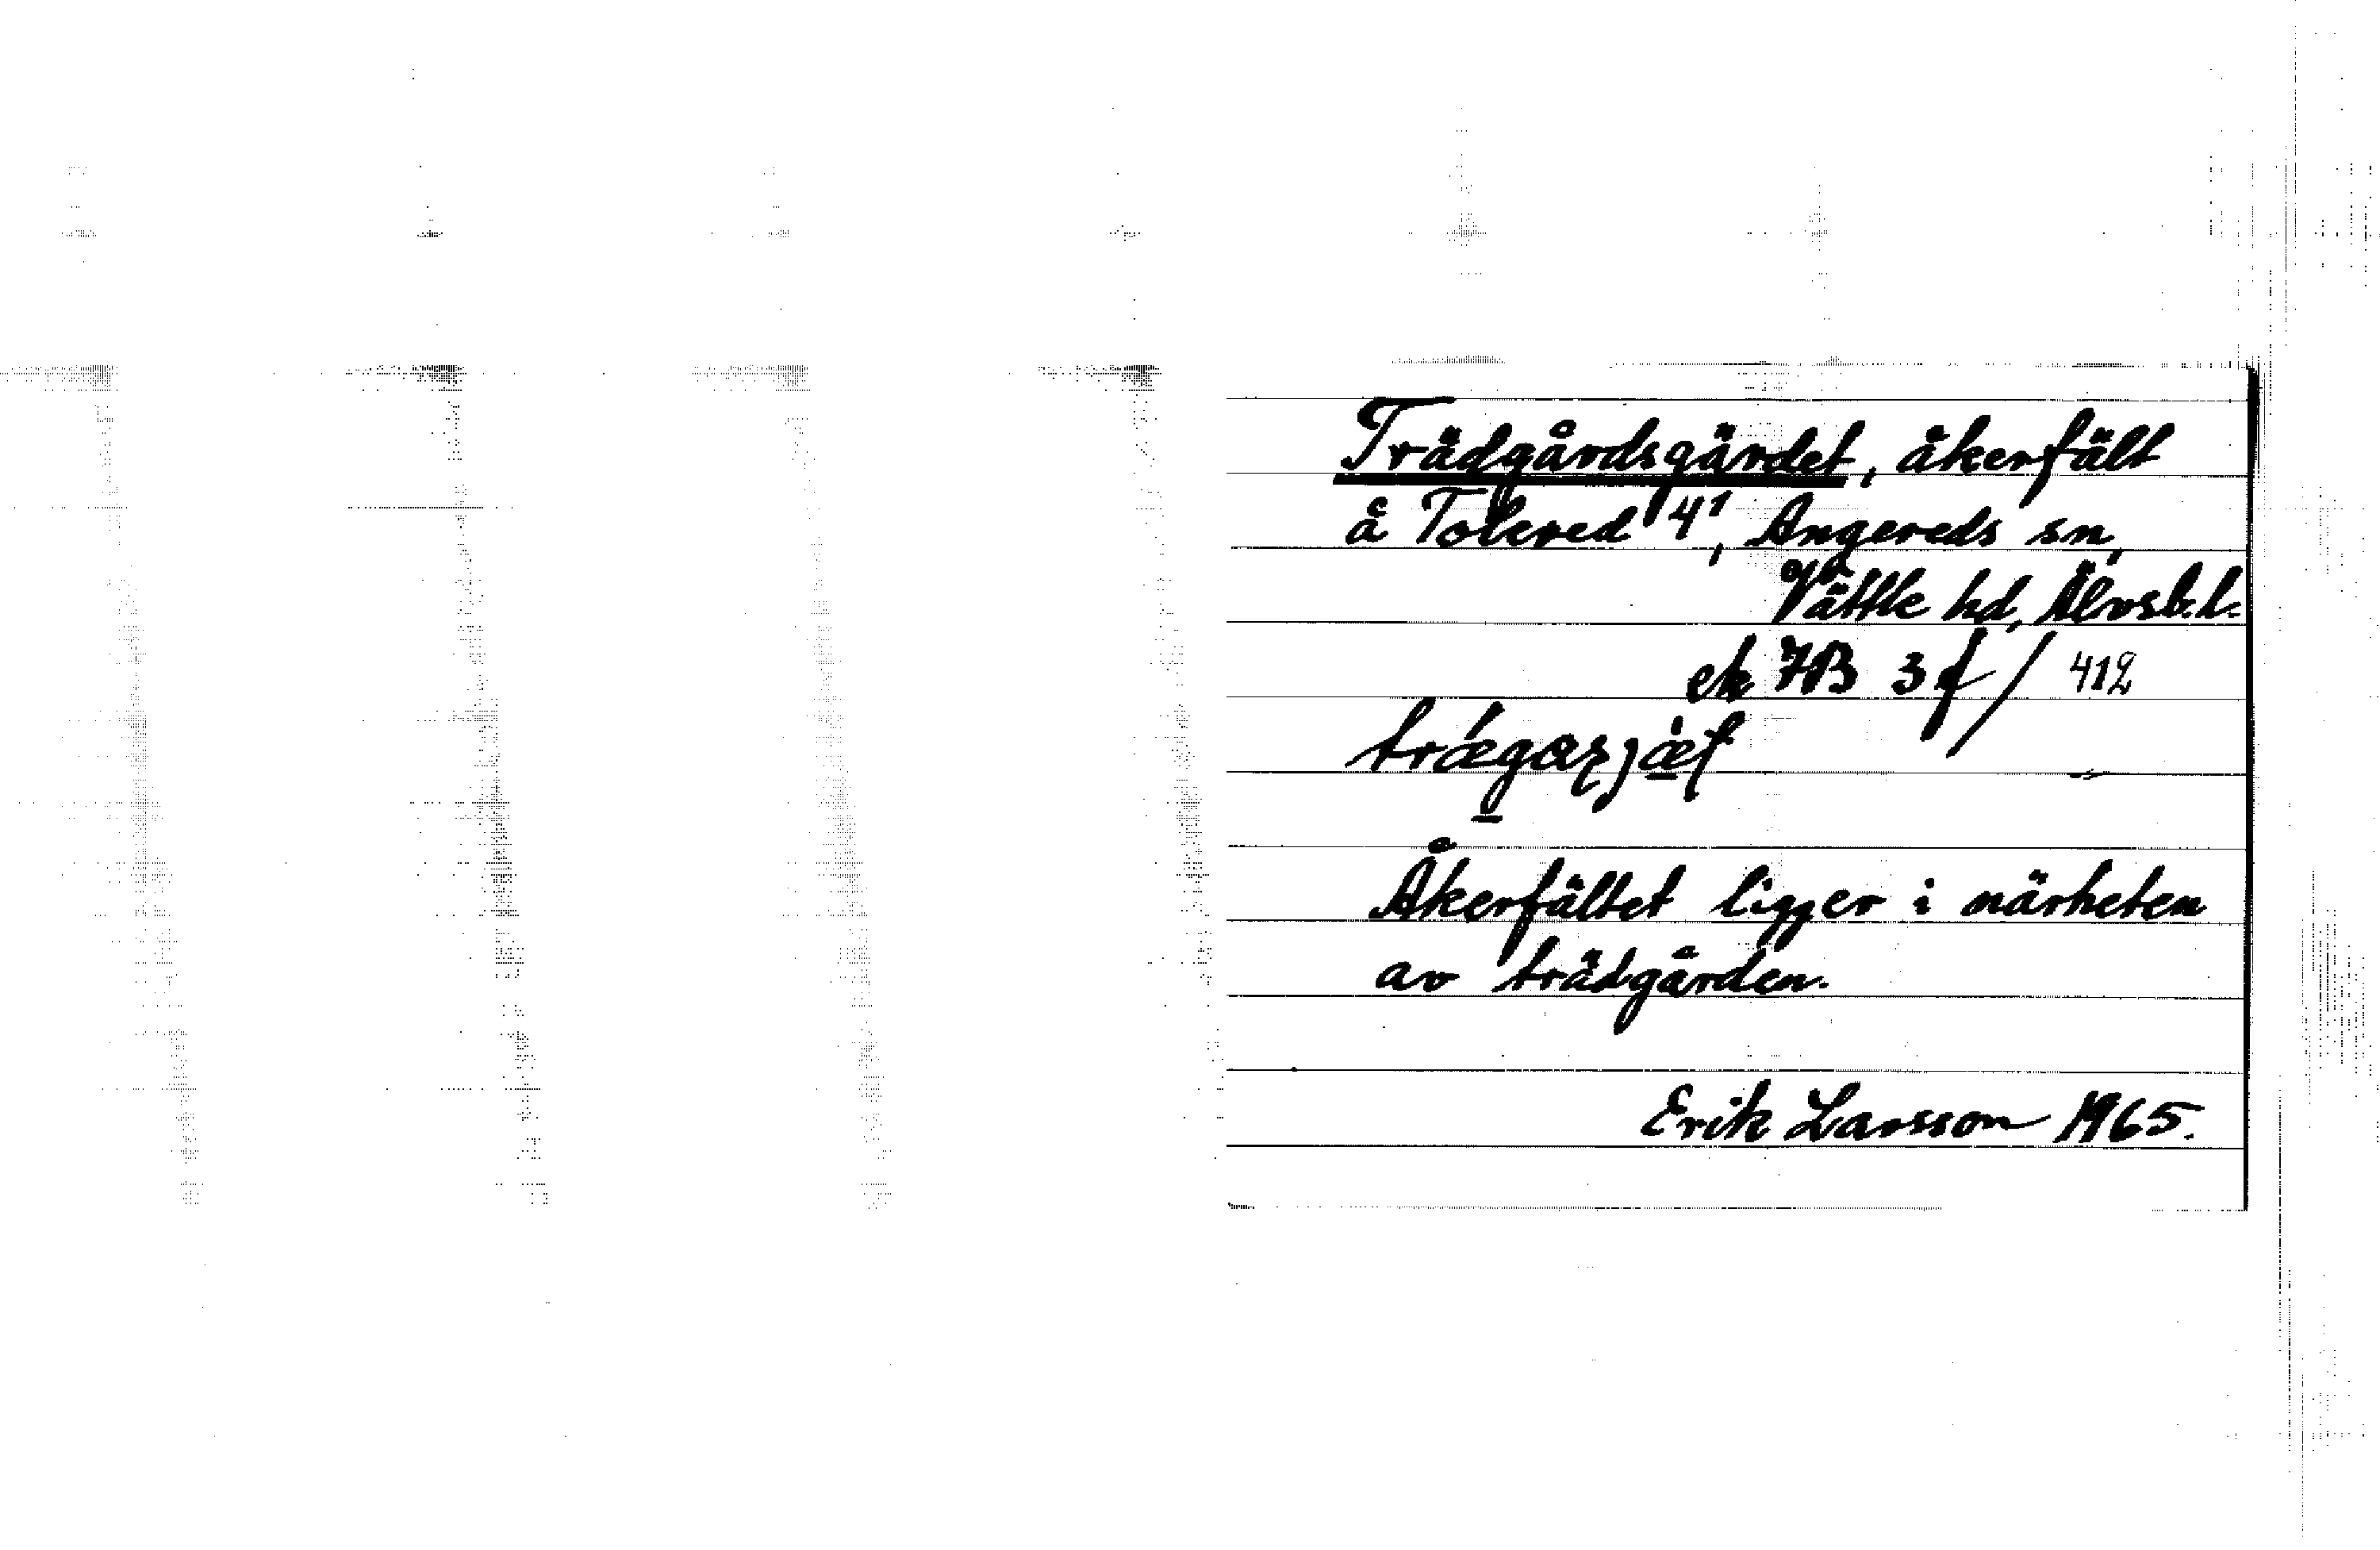 Trädgårdsgärdet, åkerfält
å Tolered 4¹, Angereds sn,
Vättle hd, Älvsb.l.
ek 7B 3f / 412
Åkerfältet ligger i närheten
av trädgården.
Erik Larsson 1965.